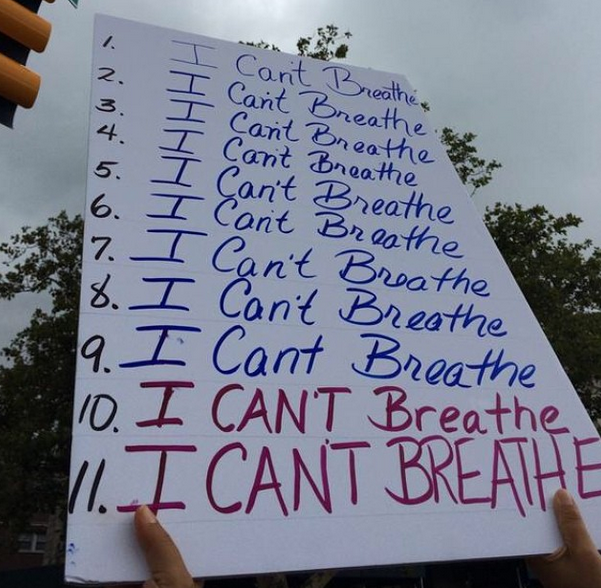 1. I Can't Breathe
2. I Can't Breathe
3. I Can't Breathe
4. I Can't Breathe
5. I Can't Breathe
6. I Can't Breathe
7. I Can't Breathe
8. I Can't Breathe
9. I Cant Breathe
10. I CAN'T Breathe
11. I CAN'T BREATHE